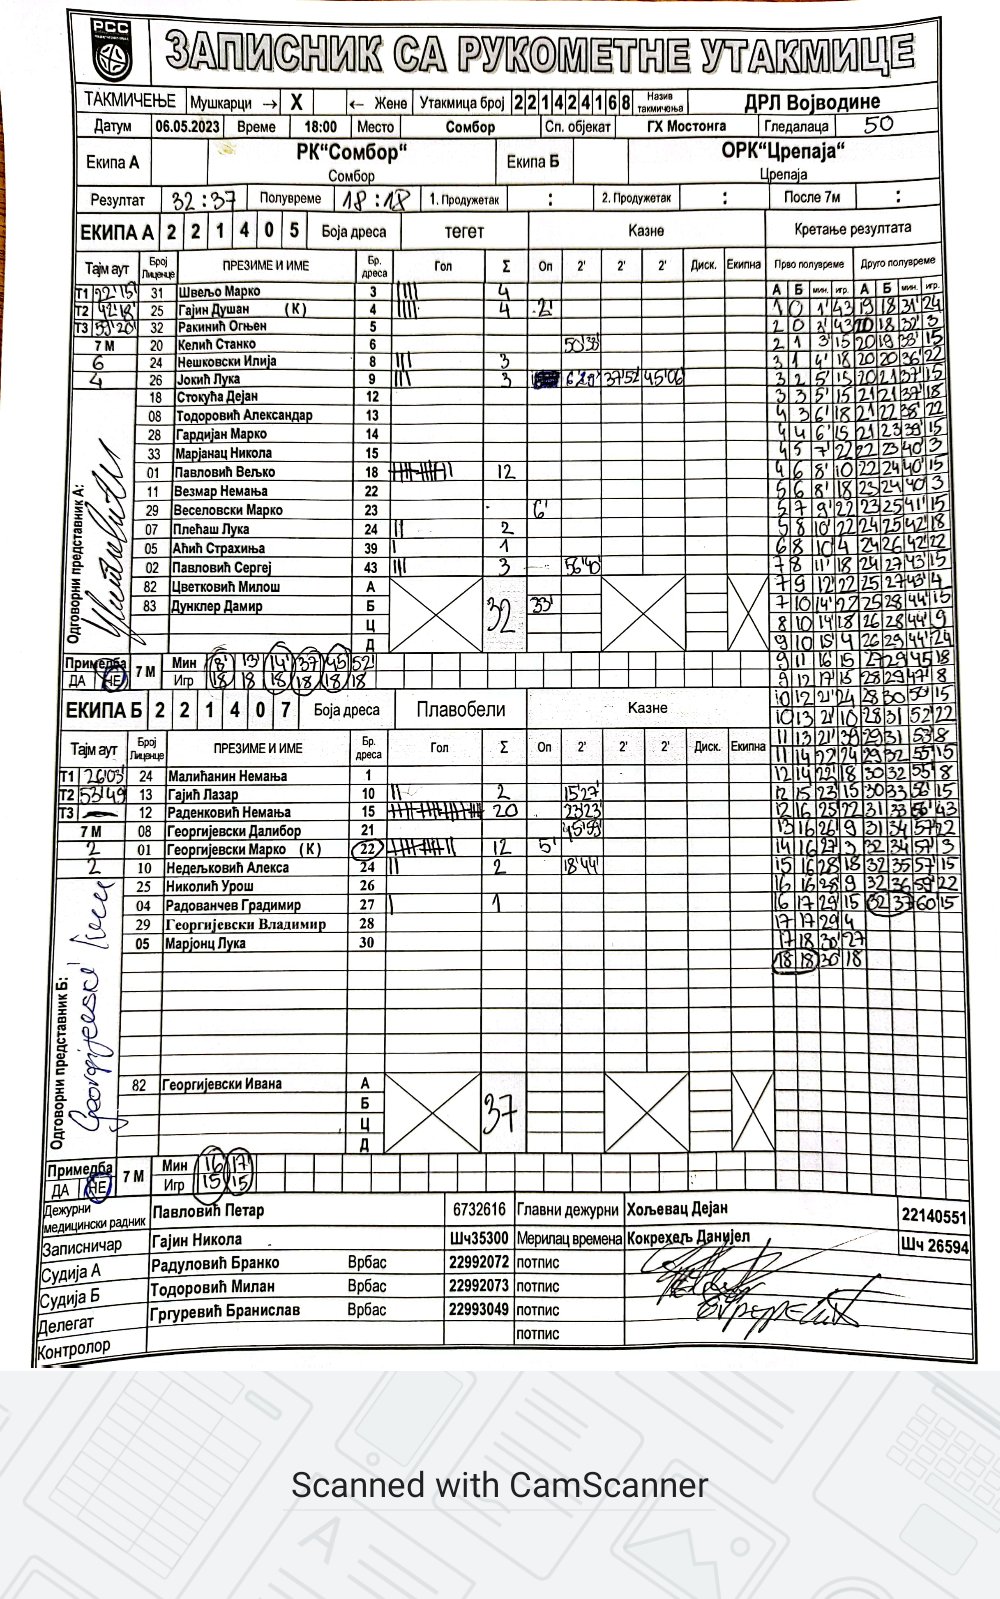 РСС
ЗАПИСНИК СА РУКОМЕТНЕ УТАКМИЦЕ
ТАКМИЧЕЊЕ Мушкарци → X ← Жене Утакмица број 2 2 1 4 2 4 1 6 8 Назив такмичења ДРЛ Војводине
Датум 06.05.2023 Време 18:00 Место Сомбор Сп. објекат ГХ Мостонга Гледалаца 50
Екипа А РК“Сомбор“ Сомбор Екипа Б ОРК“Црепаја“ Црепаја
Резултат 32:37 Полувреме 18:18 1. Продужетак : 2. Продужетак : После 7м :
ЕКИПА А 2 2 1 4 0 5 Боја дреса тегет Казне Кретање резултата
Тајм аут Број Лиценце ПРЕЗИМЕ И ИМЕ Бр. дреса Гол Σ Оп 2' 2' 2' Диск. Екипна Прво полувреме Друго полувреме
А Б мин. игр. А Б мин. игр.
Т1 22'15" 31 Швељо Марко 3 |||| 4
Т2 42'18" 25 Гајин Душан (К) 4 |||| 4 2'
Т3 59'20" 32 Ракинић Огњен 5
7 М 20 Келић Станко 6 50'38"
6 24 Нешковски Илија 8 ||| 3
4 26 Јокић Лука 9 ||| 3 6'29" 37'52" 45'06"
18 Стокућа Дејан 12
08 Тодоровић Александар 13
28 Гардијан Марко 14
33 Марјанац Никола 15
01 Павловић Вељко 18 12
11 Везмар Немања 22
29 Веселовски Марко 23 6'
07 Плећаш Лука 24 || 2
05 Аћић Страхиња 39 | 1
02 Павловић Сергеј 43 ||| 3 56'40"
82 Цветковић Милош А
83 Дунклер Дамир Б 32 33'
Ц
Д
Одговорни представник А:
Примедба ДА НЕ 7 М Мин 8' 13' 14' 37' 45' 52'
Игр 18 18 18 18 18 18
1 0 1' 43 19 18 31' 24
2 0 2' 43 20 18 32' 3
2 1 3' 15 20 19 33' 15
3 1 4' 18 20 20 36' 22
3 2 5' 15 20 21 37' 15
3 3 5' 15 21 21 37' 18
4 3 6' 18 21 22 38' 22
4 4 6' 15 21 23 39' 15
4 5 7' 22 22 23 40' 3
4 6 8' 10 22 24 40' 15
5 6 8' 18 23 24 40' 3
5 7 9' 22 23 25 41' 15
5 8 10' 22 24 25 42' 18
6 8 10' 4 24 26 42' 22
7 8 11' 18 24 27 43' 15
7 9 12' 22 25 27 43' 4
7 10 14' 22 25 28 44' 15
8 10 14' 18 26 28 44' 9
9 10 15' 4 26 29 44' 24
9 11 16 15 27 29 45 18
9 12 17' 15 28 29 47' 8
10 12 21' 24 28 30 50' 15
10 13 21' 10 28 31 52' 22
11 13 21' 39 29 31 53' 8
11 14 22' 24 29 32 55' 15
12 14 22' 18 30 32 55' 8
12 15 23 15 30 33 56' 15
12 16 25' 22 31 33 56' 43
13 16 26' 9 31 34 57' 22
14 16 27' 3 32 34 57' 3
15 16 28' 18 32 35 57' 15
16 16 28' 9 32 36 59' 22
16 17 29' 15 32 37 60 15
17 17 29' 4
17 18 30' 27
18 18 30' 18
ЕКИПА Б 2 2 1 4 0 7 Боја дреса Плавобели Казне
Тајм аут Број Лиценце ПРЕЗИМЕ И ИМЕ Бр. дреса Гол Σ Оп 2' 2' 2' Диск. Екипна
Т1 26'03" 24 Малићанин Немања 1
Т2 53'49" 13 Гајић Лазар 10 || 2 15'27"
Т3 — 12 Раденковић Немања 15 20 23'23"
7 М 08 Георгијевски Далибор 21 45'59"
2 01 Георгијевски Марко (К) 22 12 5'
2 10 Недељковић Алекса 24 || 2 18'44"
25 Николић Урош 26
04 Радованчев Градимир 27 | 1
29 Георгијевски Владимир 28
05 Марјонц Лука 30
82 Георгијевски Ивана А
Б 37
Ц
Д
Одговорни представник Б:
Примедба ДА НЕ 7 М Мин 16' 17'
Игр 15 15
Дежурни медицински радник Павловић Петар 6732616 Главни дежурни Хољевац Дејан 22140551
Записничар Гајин Никола Шч35300 Мерилац времена Кокрехељ Данијел Шч 26594
Судија А Радуловић Бранко Врбас 22992072 потпис
Судија Б Тодоровић Милан Врбас 22992073 потпис
Делегат Гргуревић Бранислав Врбас 22993049 потпис
Контролор потпис
Scanned with CamScanner